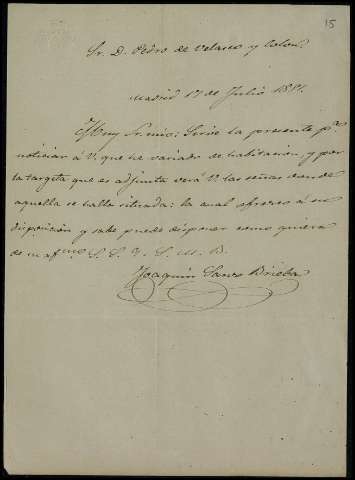 15
Sr. D. Pedro de Velasco y Colon.
Madrid 17 de Julio 18
Muy Sr. mio: Sirve la presente pª
noticiar á V. que he variado de habitacion, y por
la targeta que es adjunta verá V. las señas donde
aquella se halla situada: la cual ofrezco á su
disposición y sabe puede disponer como quiera
de su affmo S. S. Q. S. M. B.
Joaquin Sanz Brieba